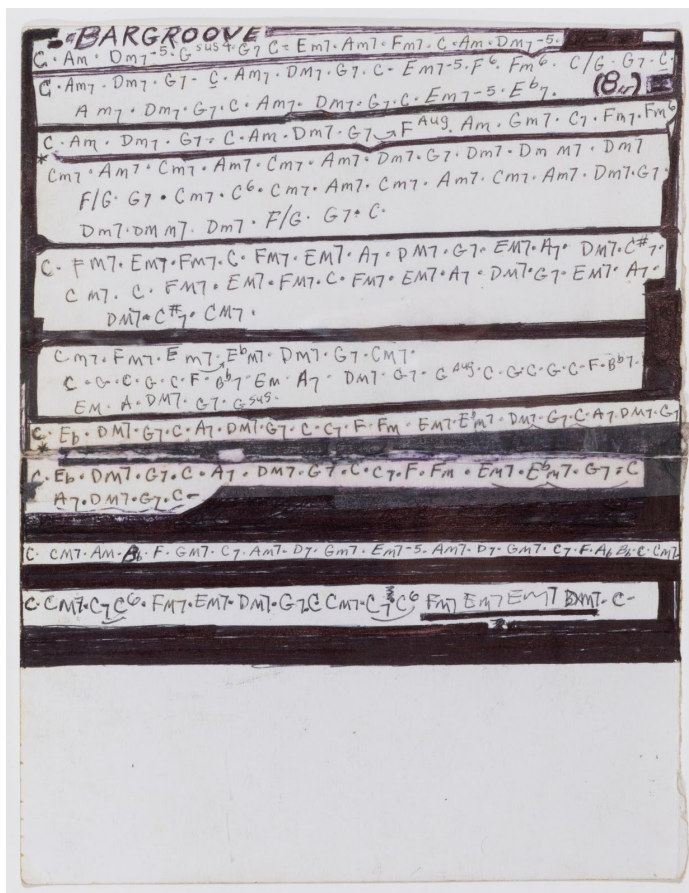 - "BARGROOVE"
C · Am · Dm7-5 · G sus4 · G7 C = Em7 · Am7 · Fm7 · C · Am · Dm7-5 ·
C · Am7 · Dm7 · G7 - C · Am7 · DM7 · G7 · C - Em7-5 · F6 · Fm6 · C/G · G7 · C
Am7 · Dm7 · G7 · C · Am7 · Dm7 · G7 · C · Em7-5 · Eb7 ·
C · Am · Dm7 · G7 - C · Am · Dm7 · G7 → F Aug · Am · Gm7 · C7 · Fm7 · Fm6
* Cm7 · Am7 · Cm7 · Am7 · Cm7 · Am7 · Dm7 · G7 · Dm7 · Dm M7 · Dm7
F/G · G7 · Cm7 · C6 · Cm7 · Am7 · Cm7 · Am7 · Cm7 · Am7 · Dm7 · G7 ·
Dm7 · DM M7 · Dm7 · F/G · G7 · C ·
C · FM7 · Em7 · FM7 · C · FM7 · EM7 · A7 · DM7 · G7 · EM7 · A7 · DM7 · C#7 ·
C M7 · C · FM7 · EM7 · FM7 · C · FM7 · EM7 · A7 · DM7 · G7 · EM7 · A7 ·
DM7 · C#7 · CM7 ·
Cm7 · Fm7 · Em7 · Ebm7 · DM7 · G7 · CM7 ·
C · G · C · G · C · F · Bb7 · Em · A7 · DM7 · G7 · G Aug · C · G · C · G · C · F · Bb7 ·
EM · A · DM7 · G7 · Gsus ·
C · Eb · DM7 · G7 · C · A7 · DM7 · G7 · C · C7 · F · Fm · EM7 · Ebm7 · DM7 · G7 · C · A7 · DM7 · G7
* C · Eb · DM7 · G7 · C · A7 · DM7 · G7 · C · C7 · F · Fm · Em7 · Ebm7 · G7 · C
A7 · DM7 · G7 · C -
C · CM7 · AM · Bb · F · GM7 · C7 · AM7 · D7 · GM7 · EM7-5 · AM7 · D7 · GM7 · C7 · F · Ab Bb · C · CM7
C · CM7 · C7 C6 · FM7 · EM7 · DM7 · G7 · C CM7 · C7 C6 FM7 EM7 EM7 DM7 · C -